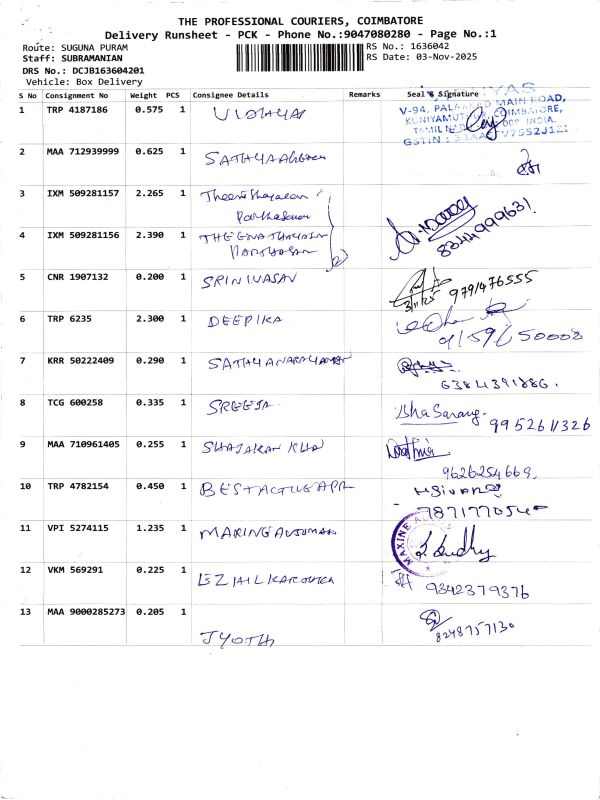 THE PROFESSIONAL COURIERS, COIMBATORE
Delivery Runsheet - PCK - Phone No.:9047080280 - Page No.:1
Route: SUGUNA PURAM RS No.: 1636042
Staff: SUBRAMANIAN RS Date: 03-Nov-2025
DRS No.: DCJB163604201
Vehicle: Box Delivery
S No Consignment No Weight PCS Consignee Details Remarks Seal & Signature
1 TRP 4187186 0.575 1 VIDHYA
V-94, PALAKKAD MAIN ROAD,
KUNIYAMUTHUR, COIMBATORE,
TAMIL NADU, INDIA.
GSTIN :
2 MAA 712939999 0.625 1
3 IXM 509281157 2.265 1
4 IXM 509281156 2.390 1
8344999631.
5 CNR 1907132 0.200 1 SRINIVASAN 3/11/25 9791476555
6 TRP 6235 2.300 1 DEEPIKA 9159650008
7 KRR 50222409 0.290 1 SATHYANARAYANAN
6384391886.
8 TCG 600258 0.335 1 SREEJA Isha Sarang. 9952611326
9 MAA 710961405 0.255 1 SHAJAHAN KHA
9626254669.
10 TRP 4782154 0.450 1 BESTACTUEAPR
11 VPI 5274115 1.235 1 MARINGAUTOMAN
12 VKM 569291 0.225 1 9342379376
13 MAA 9000285273 0.205 1 JYOTHI 8248757130